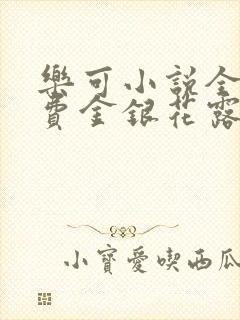 樂可小说全
費金銀花露
小寶愛喫西瓜